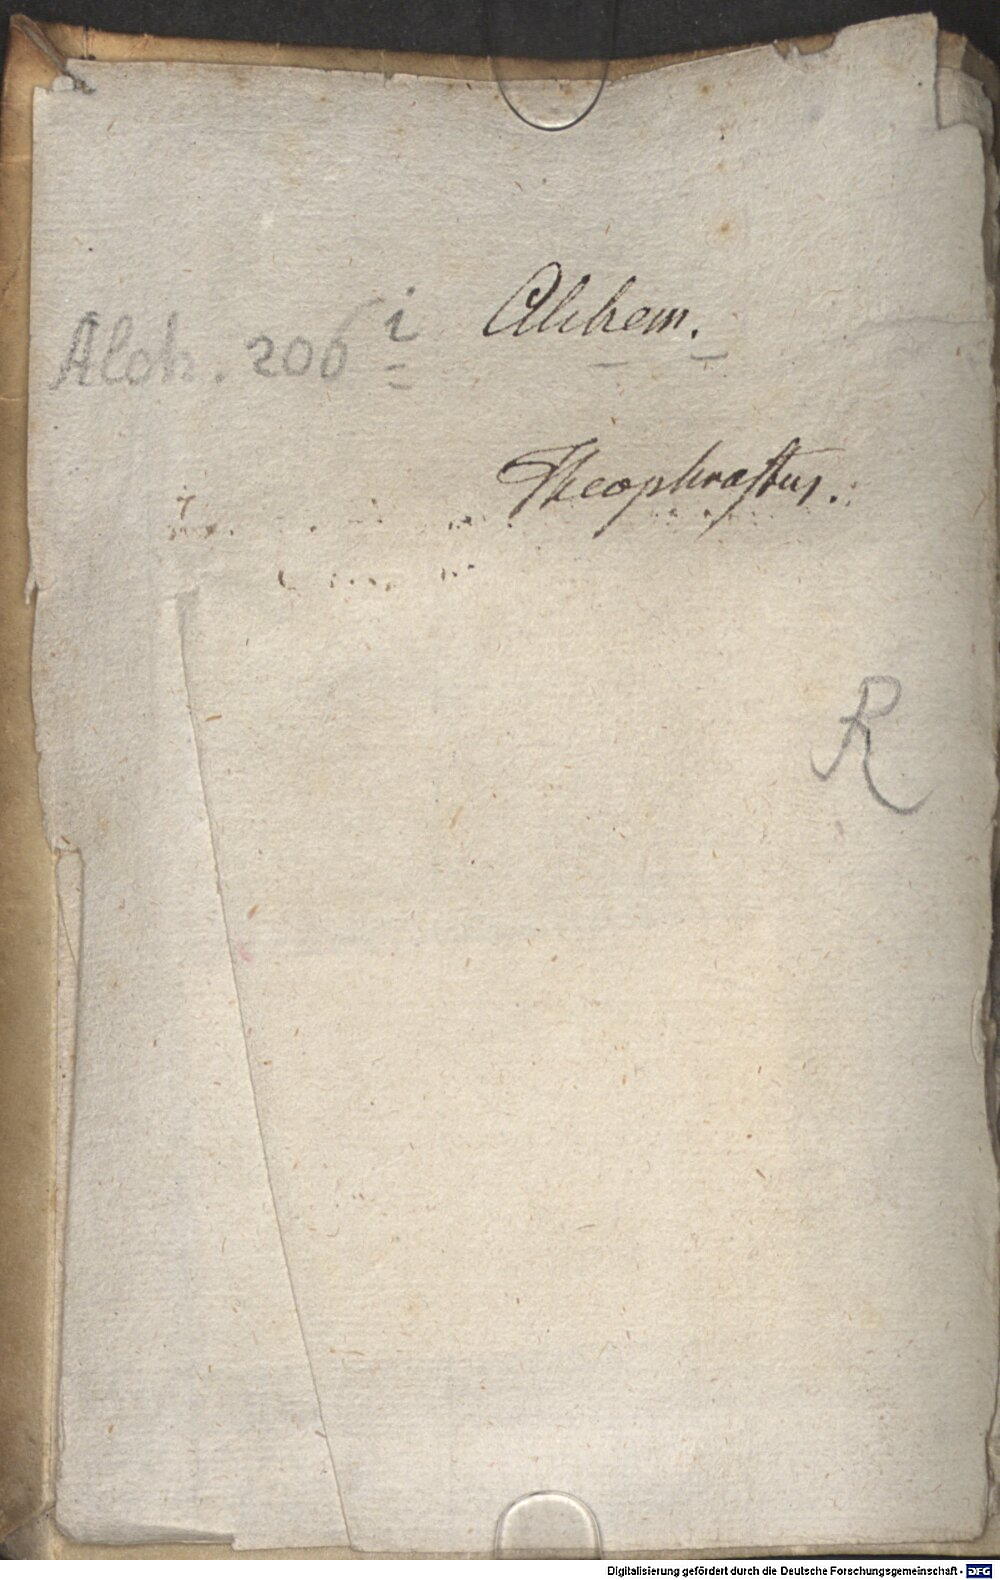 Alchem.
Alch. 206 i
Theophrastus.
R
Digitalisierung gefördert durch die Deutsche Forschungsgemeinschaft - DFG